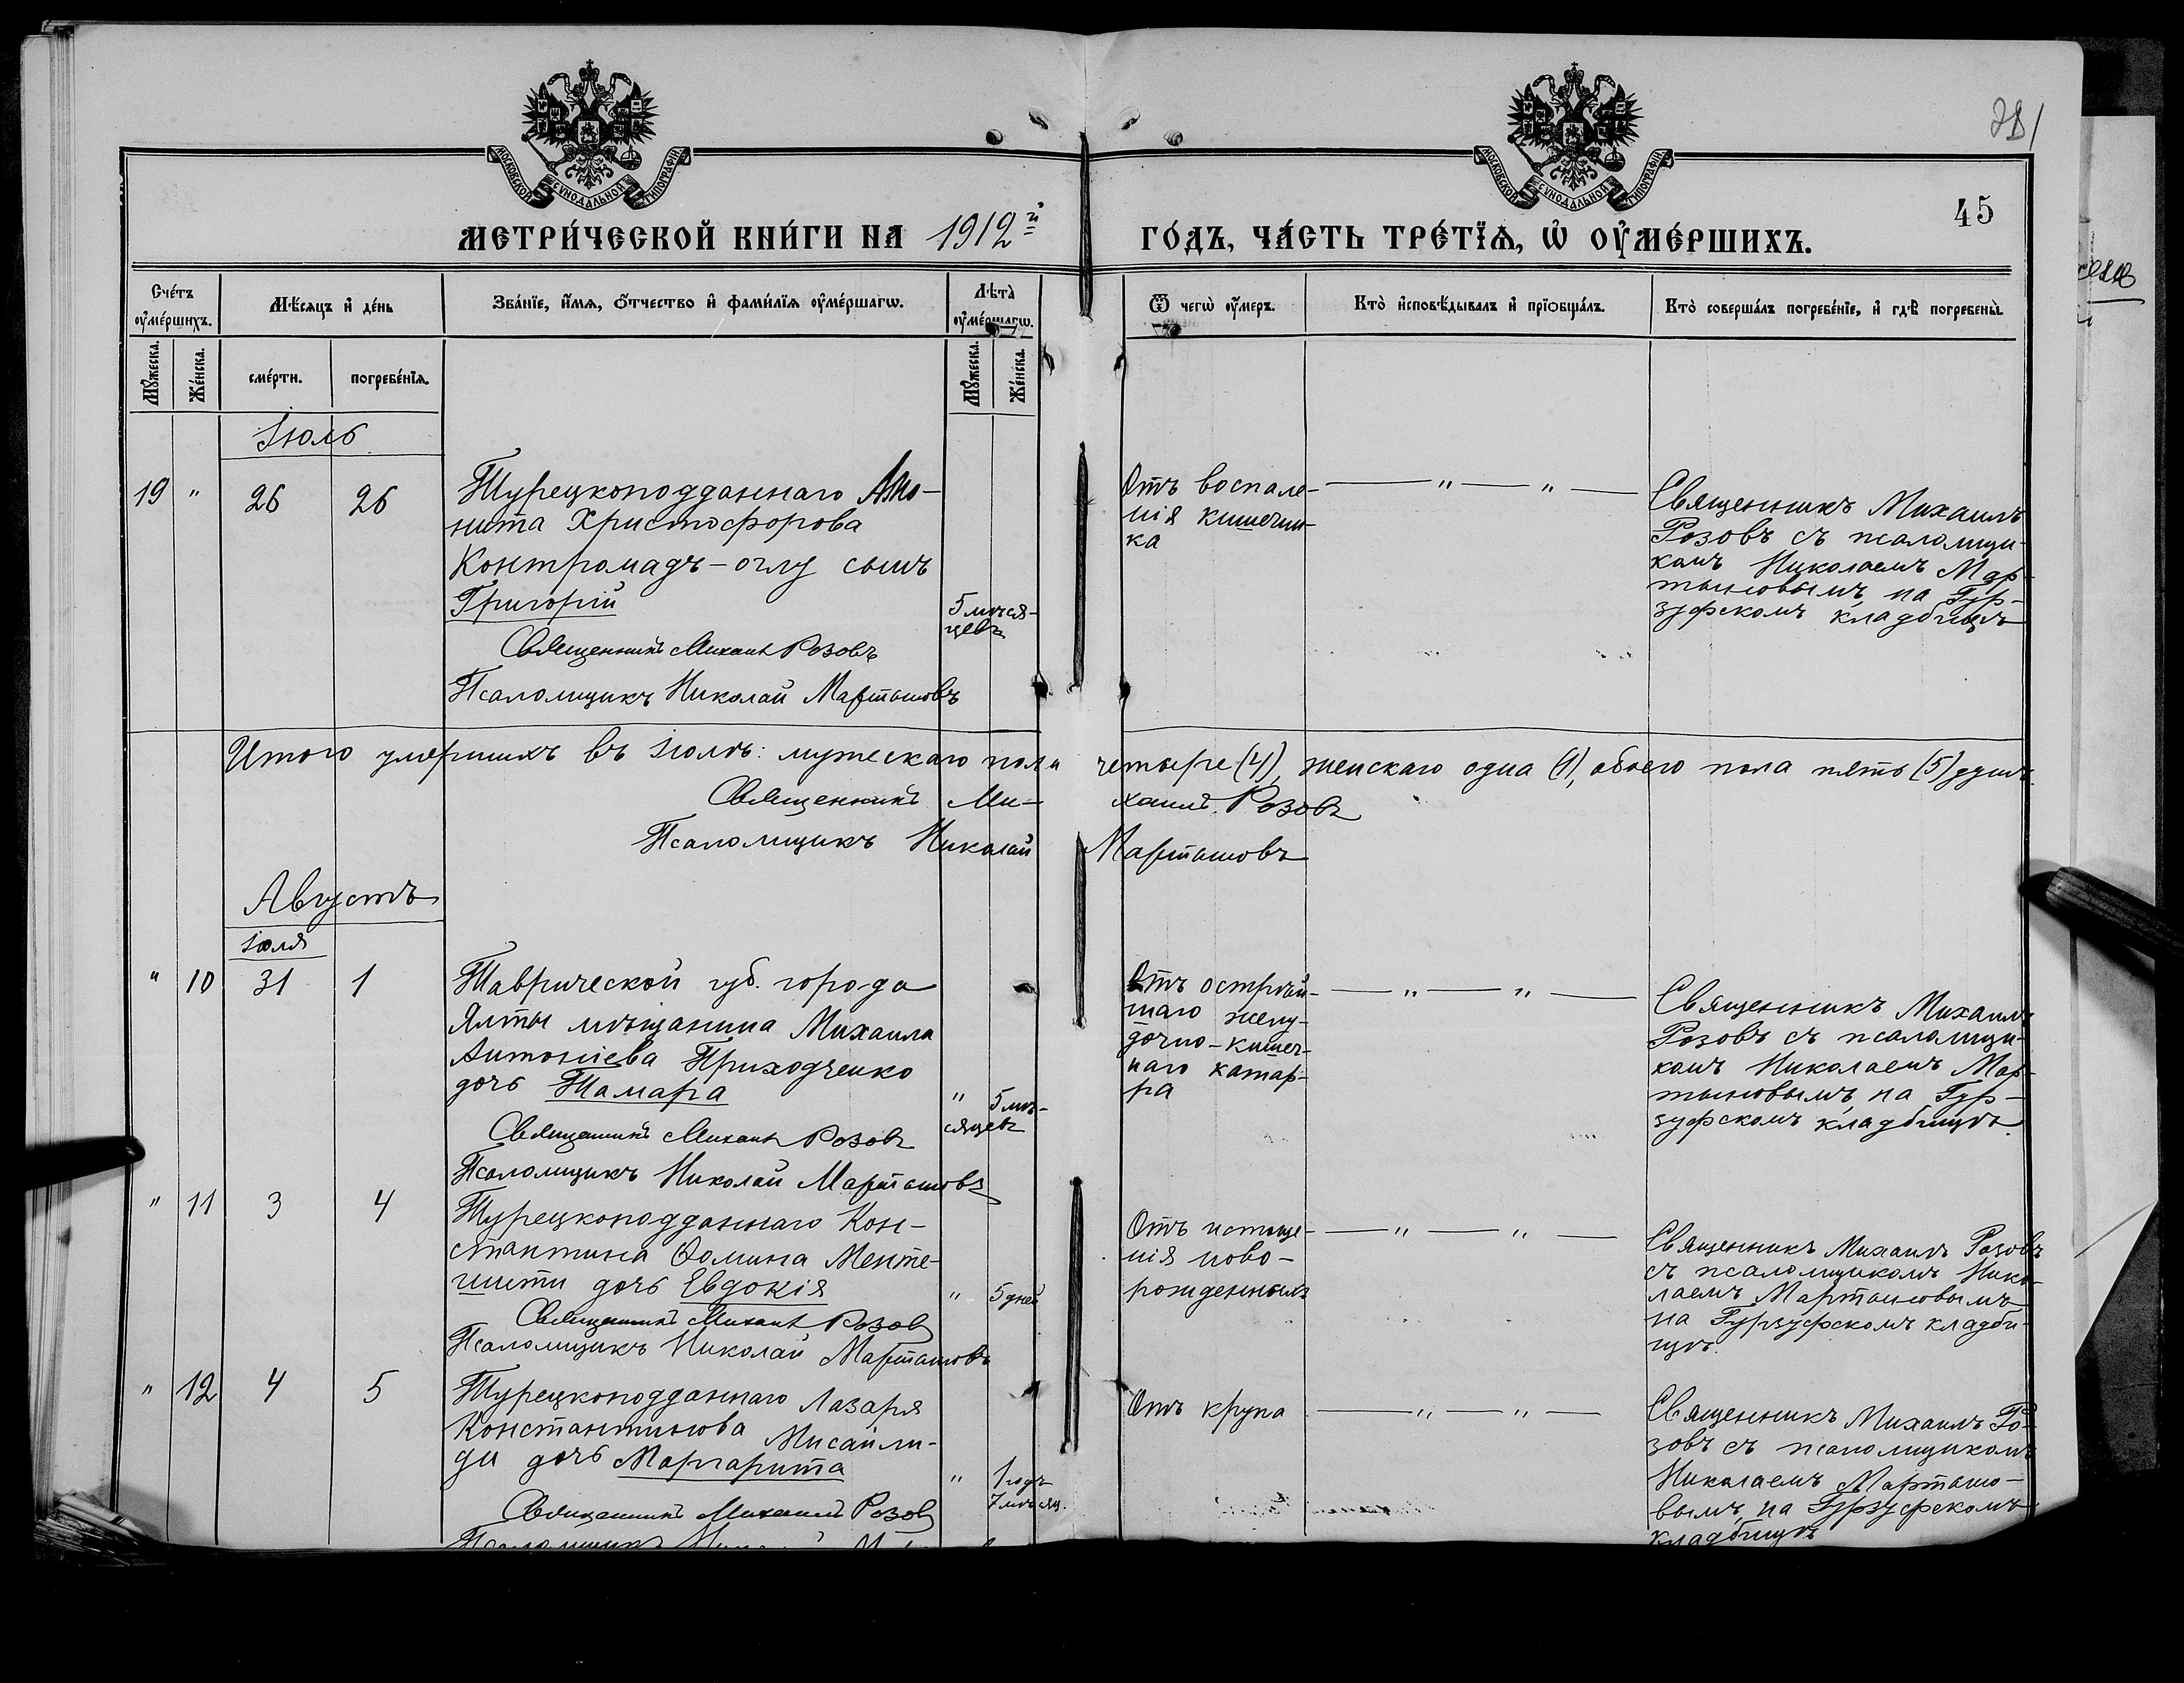 МОСКОВСКОЙ СѴНОДАЛЬНОЙ ТИПОГРАФІИ
МОСКОВСКОЙ СѴНОДАЛЬНОЙ ТИПОГРАФІИ
45
МЕТРИ́ЧЕСКОЙ КНИ́ГИ НА 1912й ГО́ДЪ, ЧА́СТЬ ТРЕ́ТЇѦ, Ѡ҆ ОУ҆МЕ́РШИХЪ.
Сче́тъ оу҆ме́ршихъ.
Мѣ́сяцъ и҆ де́нь
Зва́нїе, и҆́мѧ, ѻ҆́тчество и҆ фами́лїѧ оу҆ме́ршагѡ.
Лѣта̀ оу҆ме́ршагѡ.
Ѿ чегѡ̀ оу҆́меръ.
Кто̀ и҆сповѣ́дывалъ и҆ прїѡбща́лъ.
Кто̀ соверша́лъ погребе́нїе, и҆ гдѣ̀ погребены̀.
Мꙋ́жеска.
Же́нска.
сме́рти.
погребе́нїѧ.
Мꙋ́жеска.
Же́нска.
Іюль
19 " 26 26
Турецкоподданнаго
нита Христофорова
Контромадъ-оглу сынъ
Григорій
5 мѣся-
цевъ
Священникъ Михаилъ Розовъ
Псаломщикъ Николай Мартыновъ
Отъ воспале-
нія кишечни-
ка
— " — " —
Священникъ Михаилъ
Розовъ съ псаломщи-
комъ Николаемъ Мар-
тыновымъ, на Гур-
зуфскомъ кладбищѣ
Итого умершихъ въ Іюлѣ: мужескаго пола четыре (4), женскаго одна (1), обоего пола пять (5) душъ.
Священникъ Михаилъ Розовъ
Псаломщикъ Николай Мартыновъ
Августъ
Іюля
" 10 31 1
Таврической губ. города
Ялты мѣщанина Михаила
Антоніева Приходченко
дочь Тамара
" 5 мѣ-
сяцевъ
Священникъ Михаилъ Розовъ
Псаломщикъ Николай Мартыновъ
Отъ острѣй-
шаго желу-
дочно-кишеч-
наго катар-
ра
— " — " —
Священникъ Михаилъ
Розовъ съ псаломщи-
комъ Николаемъ Мар-
тыновымъ, на Гур-
зуфскомъ кладбищѣ.
" 11 3 4
Турецкоподданнаго Кон-
стантина Ѳомина Менте-
шити дочь Евдокія
" 5 дней
Священникъ Михаилъ Розовъ
Псаломщикъ Николай Мартыновъ
Отъ истоще-
нія ново-
рожденныхъ
— " — " —
Священникъ Михаилъ Розовъ
съ псаломщикомъ Нико-
лаемъ Мартыновымъ
на Гурзуфскомъ кладби-
щѣ.
" 12 4 5
Турецкоподданнаго Лазаря
Константинова Мисаили-
ди дочь Маргарита
" 1 годъ
7 мѣсяц.
Священникъ Михаилъ Розовъ
Отъ крупа
— " — " —
Священникъ Михаилъ Ро-
зовъ съ псаломщикомъ
Николаемъ Мартыно-
вымъ, на Гурзуфскомъ
кладбищѣ